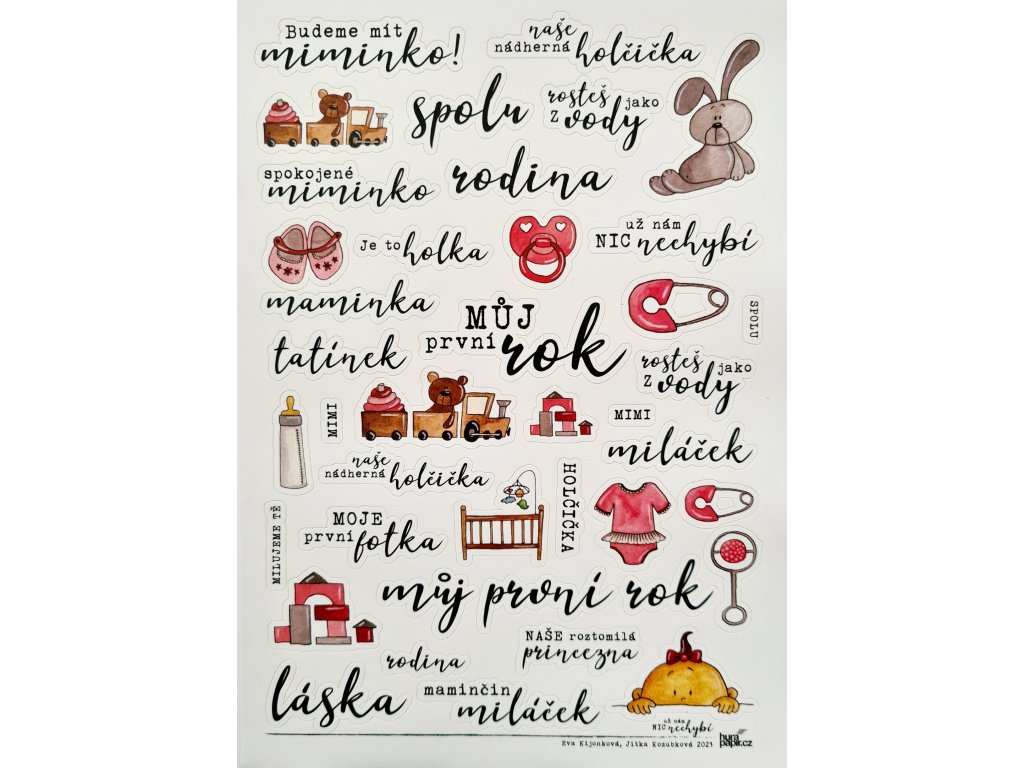 Budeme mít
miminko!
naše
nádherná holčička
spolu
rosteš jako
z vody
spokojené
miminko
rodina
Je to holka
už nám
NIC nechybí
maminka
MŮJ
první rok
SPOLU
tatínek
rosteš jako
z vody
MIMI
MIMI
miláček
naše
nádherná holčička
HOLČIČKA
MILUJEME TĚ
MOJE
první fotka
můj první rok
NAŠE roztomilá
princezna
rodina
láska
maminčin
miláček
už nám
NIC nechybí
Eva Kijonková, Jitka Kozubková 2023
hura
papir.cz